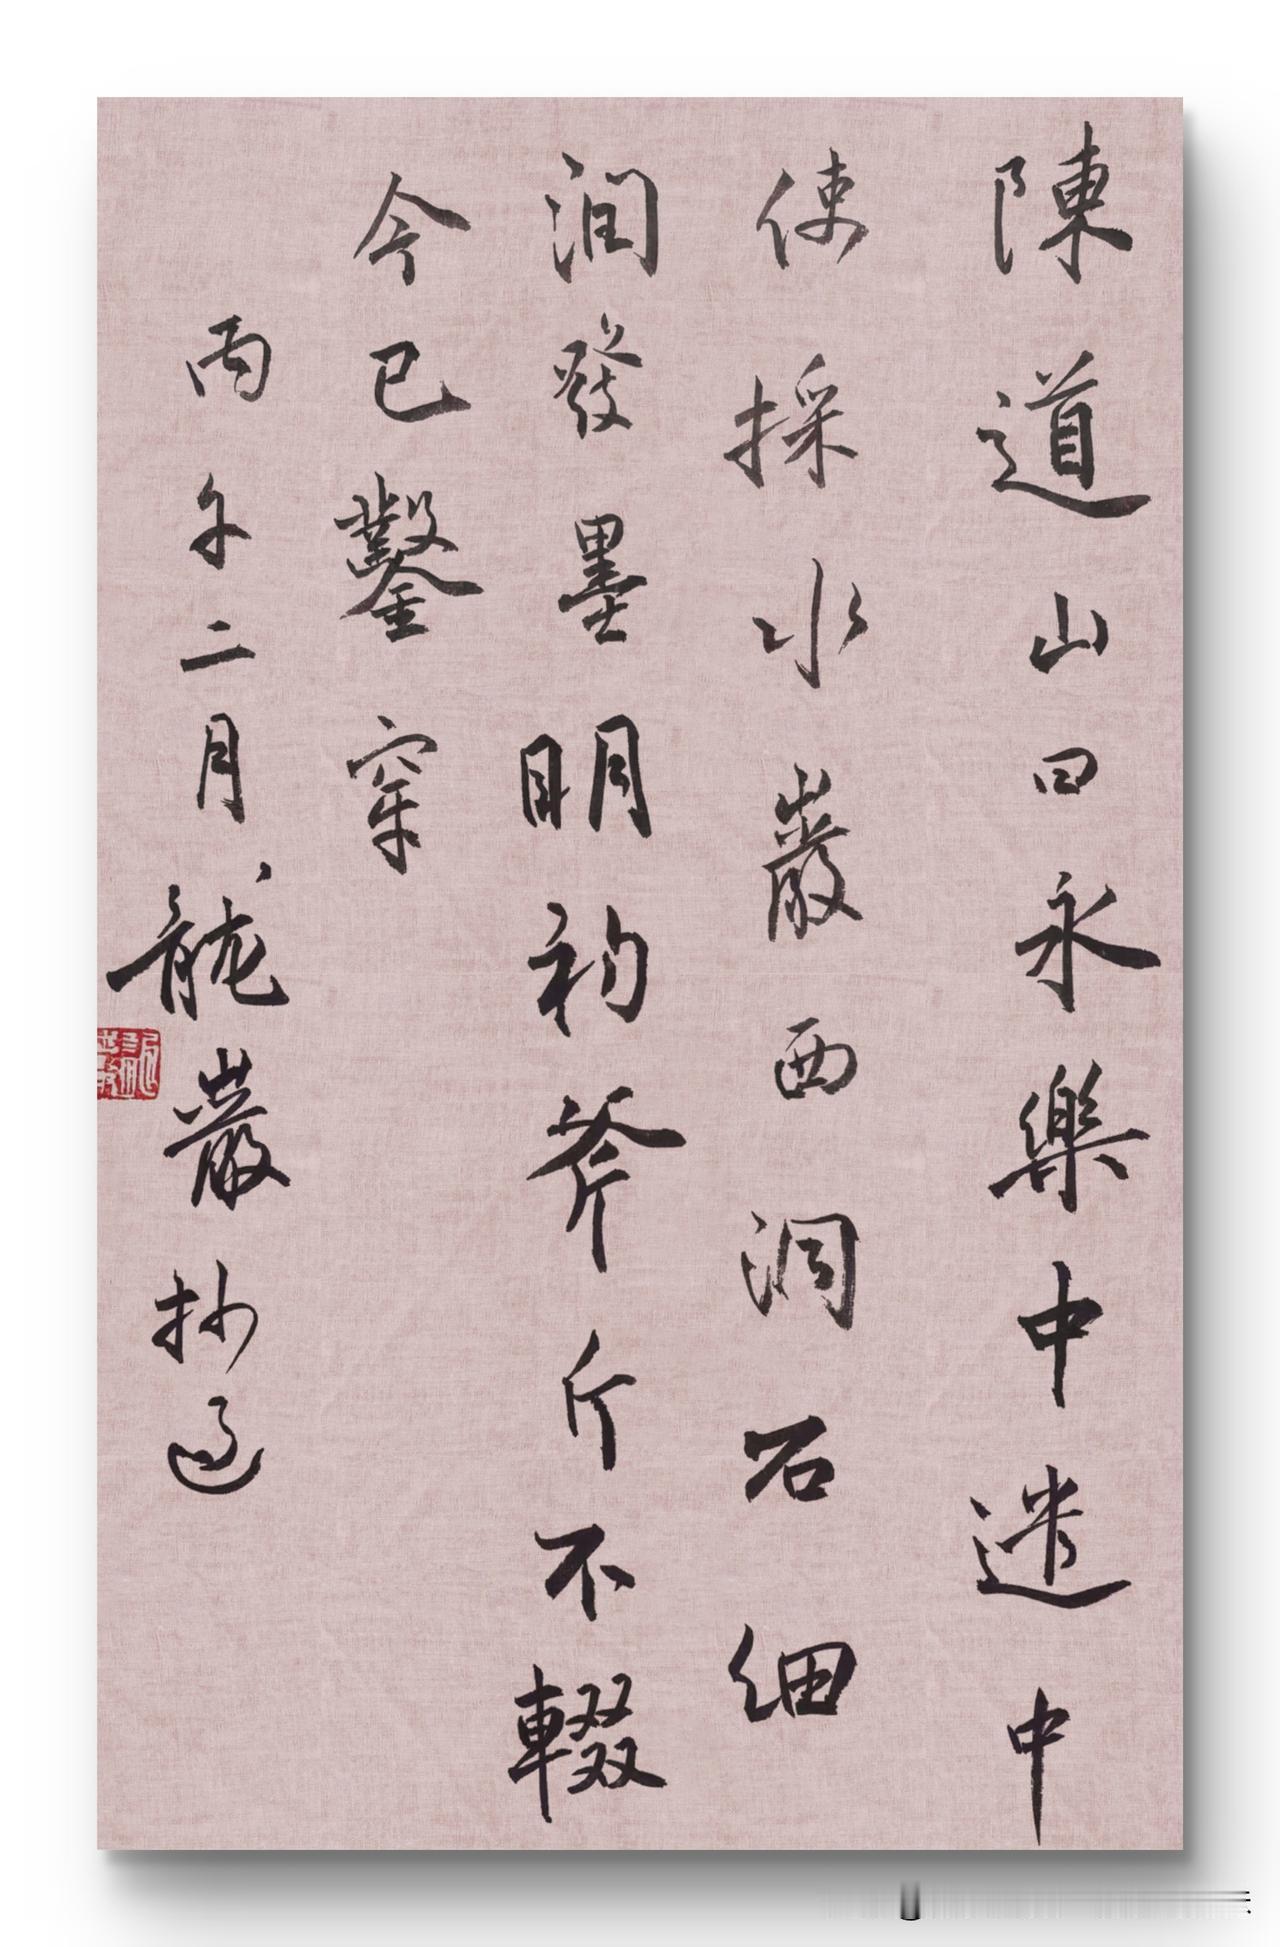 陳道山曰永樂中遣中
使採水巖西洞石細
潤發墨明初斧斤不輟
今已鑿穿
丙午二月龍巖抄過